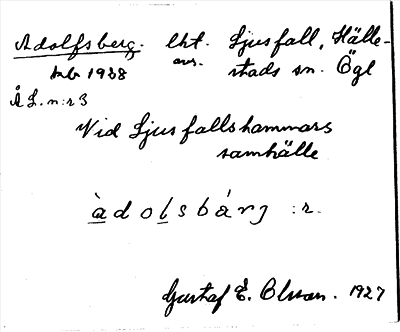 Adolfsberg. lht. Ljusfall, Hälle-
avs. stads sn. Ögl
Å L. n:r 3
Vid Ljusfallshammars
samhälle
àdolsbárj :r.
Gustaf E. Olsson. 1927